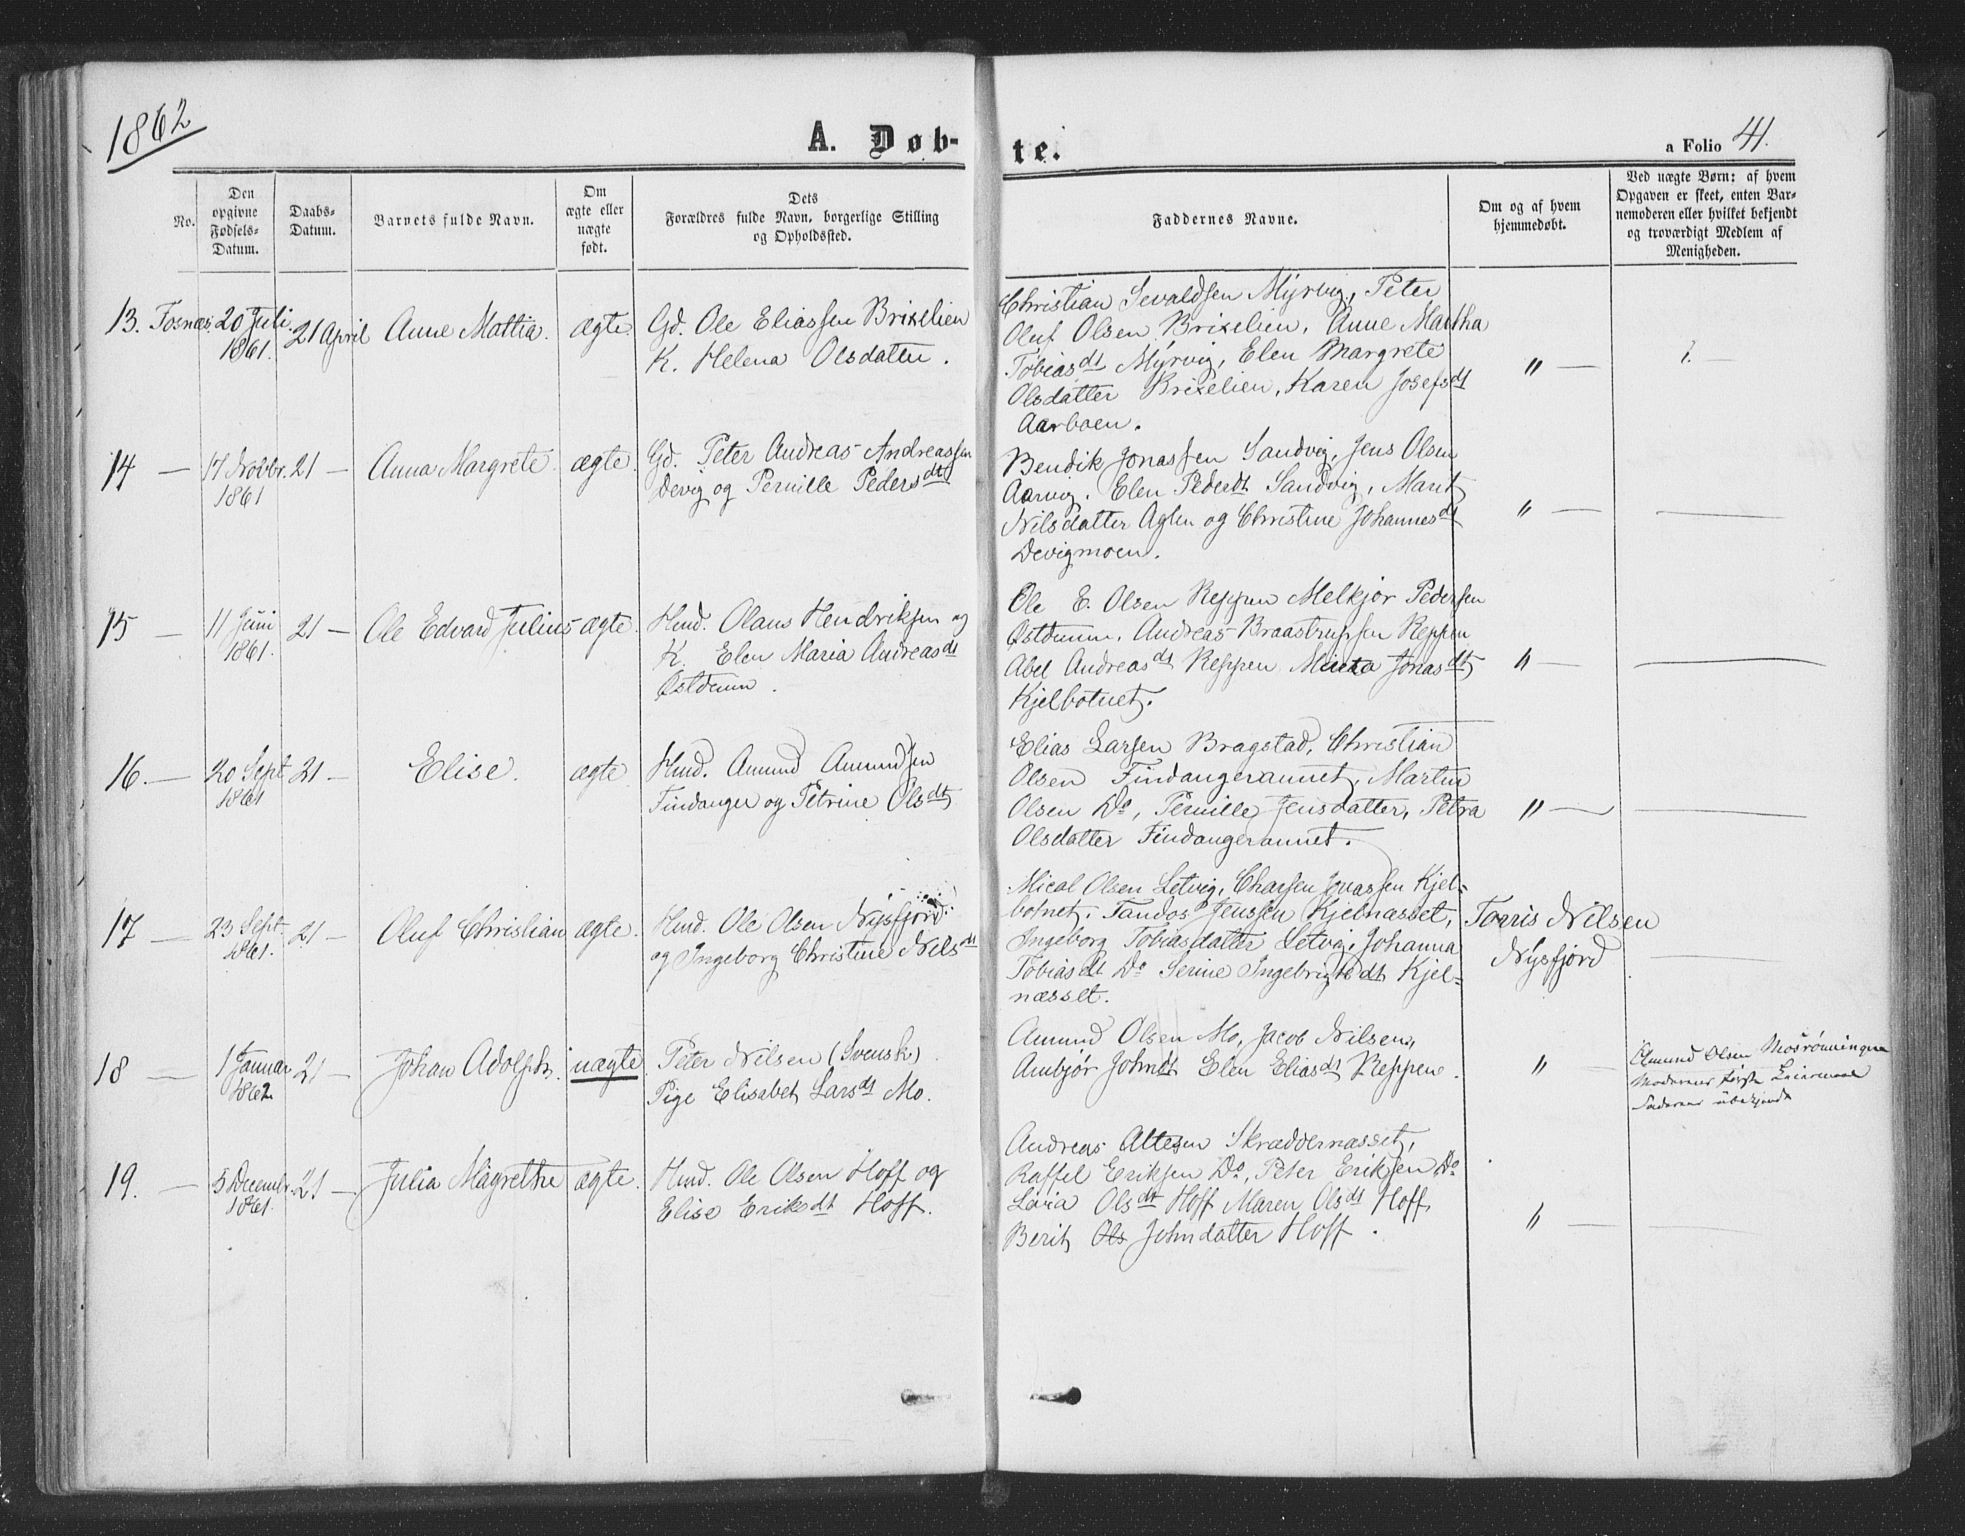 1862
A. Døb-
te.
a Folio 41.
No.
Den
opgivne
Fødsels-
Datum.
Daabs-
Datum.
Barnets fulde Navn.
Om
ægte eller
uægte
født.
Dets
Forældres fulde Navn, borgerlige Stilling
og Opholdssted.
Faddernes Navne.
Om og af hvem
hjemmedøbt.
Ved uægte Børn: af hvem
Opgaven er skeet, enten Bar-
nemoderen eller hvilket bekjendt
og troværdigt Medlem af
Menigheden.
13. Fosnæs, 20 Juli
1861.
21 April
Anne Mattia.
ægte
Gd. Ole Eliassen Brixelien
K. Helena Olsdatter.
Christian Sevaldsen Myrvig, Peter
Oluf Olsen Brixelien, Anne Martha
Tobiasdt Myrvig, Elen Margrete
Olsdatter Brixelien, Karen Josefsdt
Aarboen.
" —
14 —
17 Novbr.
1861
21 —
Anna Margrete
ægte.
Gd. Peter Andreas Andreassen
Devig og Pernille Pedersdt
Bendik Jonassen Sandvig, Jens Olsen
Aarvig, Elen Pederdt Sandvig, Marit
Nilsdatter Aglen og Christine Johannesdt
Devigmoen.
" —
15 —
11 Juni
1861.
21 —
Ole Edvard Julius
ægte.
Hmd. Olaus Hendriksen og
K. Elen Maria Andreasdt
Østdunn.
Ole E. Olsen Reppen Melkjor Pedersen
Østdunn, Andreas Braastrupsen Reppen
Abel Andreasdt Reppen Jonasdt
Kjelbotnet.
" —
16. —
20 Sept
1861
21 —
Elise.
ægte
Hmd. Amund Amundsen
Findanger og Petrine Olsdt
Elias Larsen Bragstad, Christian
Olsen Findangerannet, Martin
Olsen Do, Pernille Jensdatter, Petra
Olsdatter Findangerannet.
" —
17 —
23 Sept.
1861.
21 —
Oluf Christian
ægte.
Hmd. Ole Olsen Nysfjord
og Ingeborg Christine Nilsdt
Mical Olsen Setvig, Jonassen Kjel-
botnet, Jenssen Kjelnæsset,
Ingeborg Tobiasdatter Setvig, Johanna
Tobiasdt Do Serine Ingebrigtsdt Kjel-
næsset.
Torris Nilsen
Nysfjord
18 —
1 Januar
1862
21 —
Johan Adolph.
uægte
Peter Nilsen (Svensk)
Pige Elisabet Larsdt Mo.
Amund Olsen Mo, Jacob Nilsen,
Ambjør Johndt Elen Eliasdt Reppen.
" —
Amund Olsen Mosrønningen
Moderens første Leiermaal
Faderens ubekjendt
19. —
5 Decembr.
1861.
21 —
Julia Magrethe
ægte.
Hmd. Ole Olsen Hoff og
Elise Eriksdt Hoff.
Andreas Skræddernæsset,
Raffel Eriksen Do, Peter Eriksen Do
Olsdt Hoff Maren Olsdt Hoff,
Berit Ols Johndatter Hoff.
" —